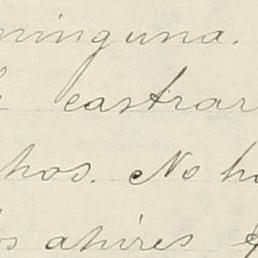 ninguna.
castrar
hos. No h
os ahires